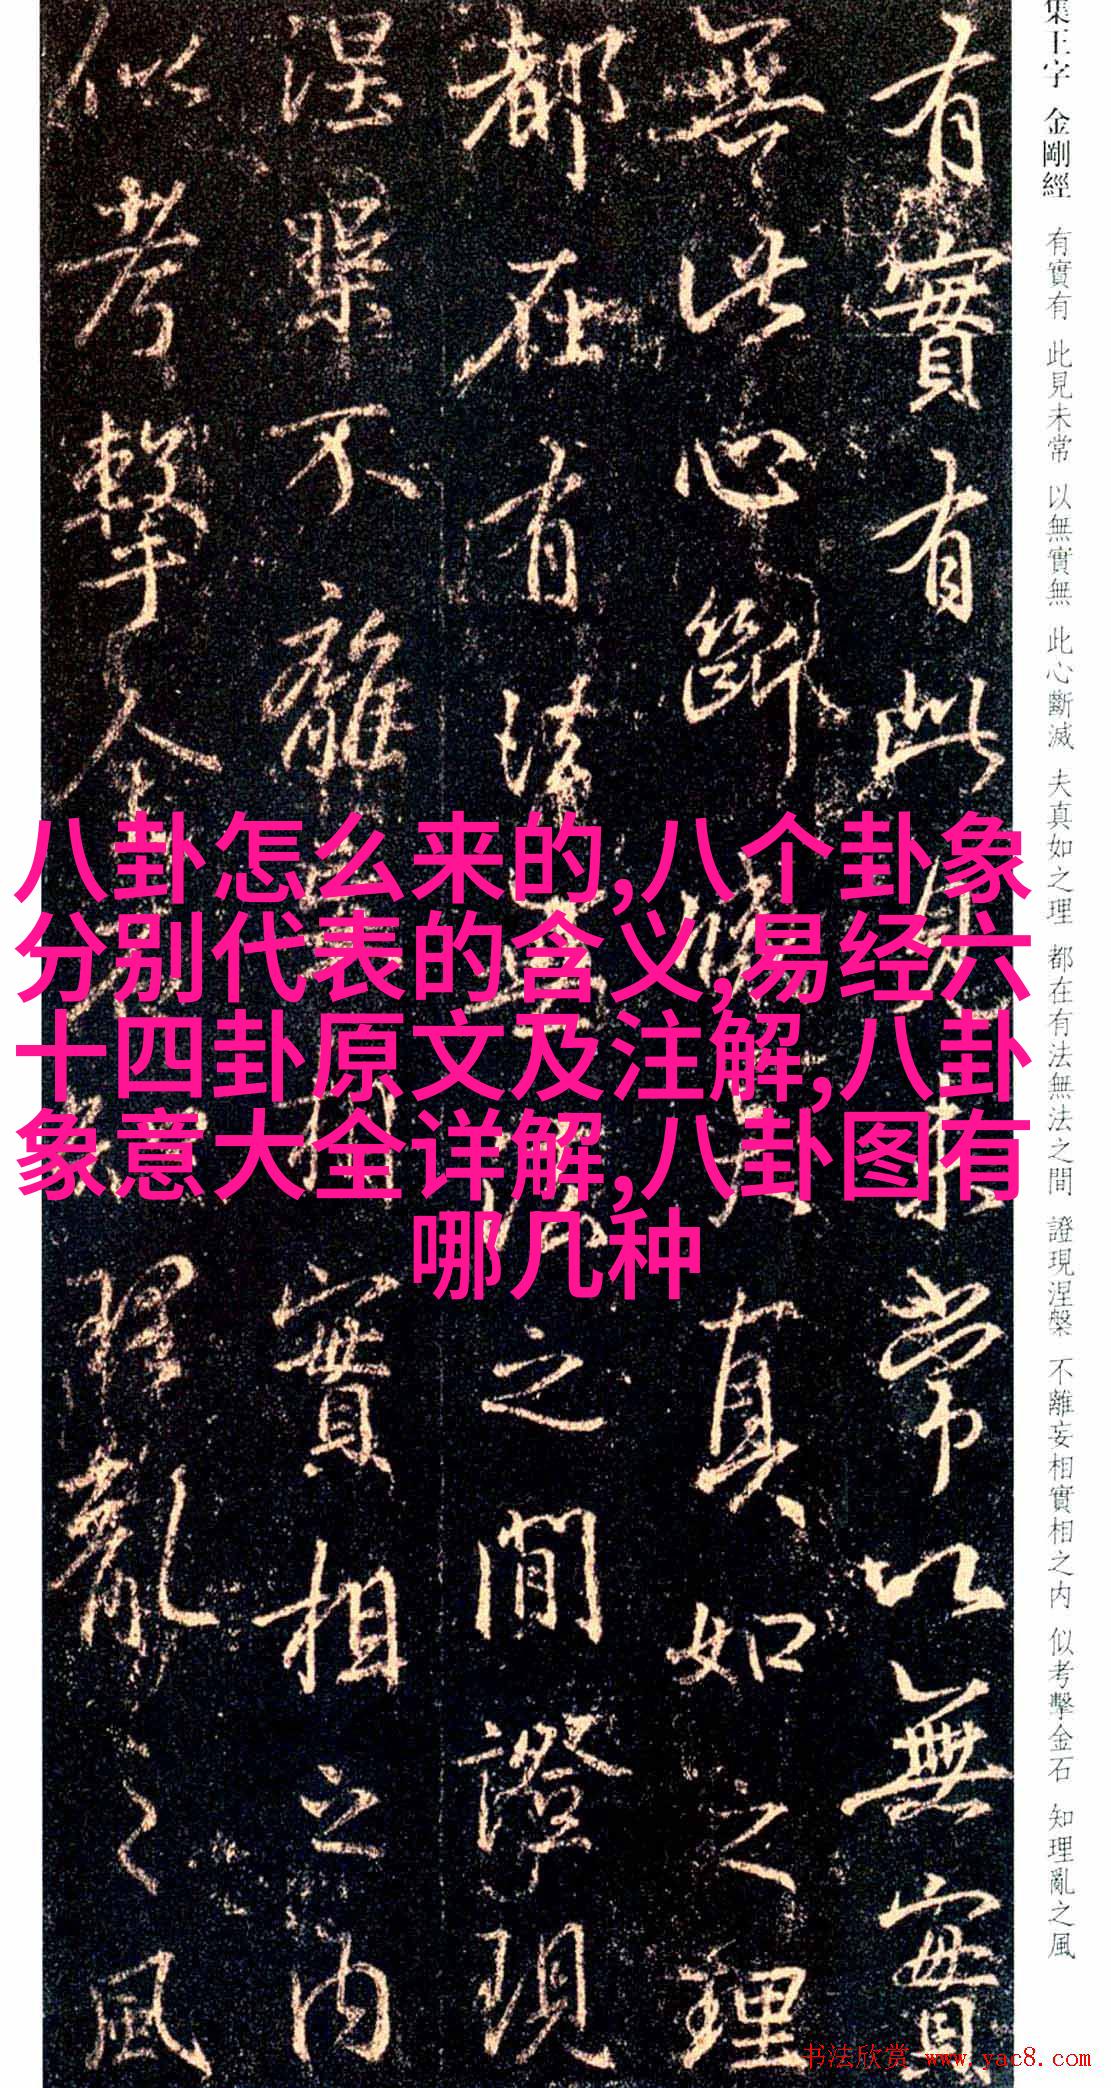 集王字 金剛經 有實有 此見未常 以無實無 此心斷滅 夫真如之理 都在有法無法之間 證現涅槃 不離妄相實相之內 似考擊金石 知理亂之風
有實有此見未常以無實
無此心斷滅夫真如之理
都在有法無法之間證現
涅槃不離妄相實相之內
似考擊金石知理亂之風
八卦怎么来的,八个卦象
分别代表的含义,易经六
十四卦原文及注解,八卦
象意大全详解,八卦图有
哪几种
书法欣赏 www.yac8.com